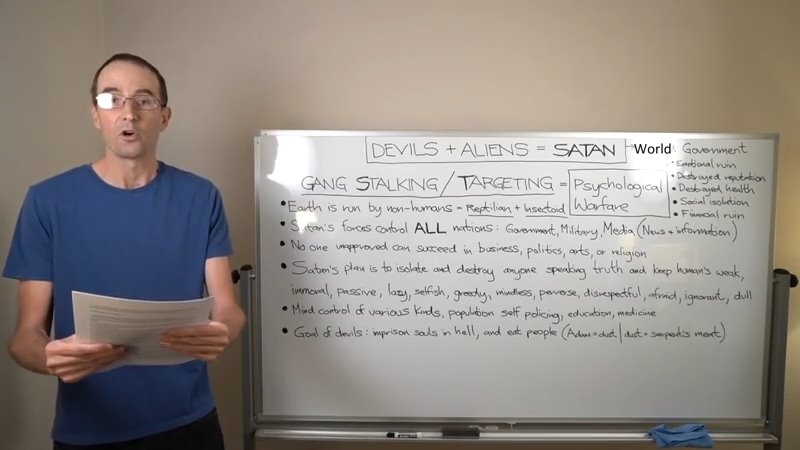 DEVILS + ALIENS = SATAN → World Government
• Emotional ruin
• Destroyed reputation
• Destroyed health
• Social isolation
• Financial ruin
GANG STALKING / TARGETING = Psychological Warfare
• Earth is run by non-humans = Reptilian + Insectoid
• Satan's forces control ALL nations: Government, Military, Media (News + information)
• No one unapproved can succeed in business, politics, arts, or religion
• Satan's plan is to isolate and destroy anyone speaking truth and keep human's weak,
immoral, passive, lazy, selfish, greedy, mindless, perverse, disrespectful, afraid, ignorant, dull
• Mind control of various kinds, population self policing, education, medicine
• Goal of devils: imprison souls in hell, and eat people (Adam = dust | dust = serpent's meat)